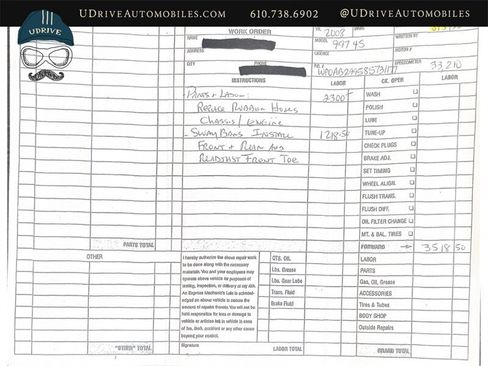 UDriveAutomobiles.com 610.738.6902 @UDriveAutomobiles
UDRIVE
WORK ORDER
NAME
ADDRESS
CITY
PHONE
YR. 2008
MODEL 997 4S
LICENSE
WRITTEN BY
MOTOR #
SPEEDOMETER 33,210
INSTRUCTIONS
LABOR
CK. OPER
LABOR
- Parts & Labor: 2300
Replace Rubber Hoses
Chassis / Engine
- Sway Bars Install 1218.50
Front + Rear And
Readjust Front Toe
WASH
POLISH
LUBE
TUNE-UP
CHECK PLUGS
BRAKE ADJ.
SET TIMING
WHEEL ALIGN.
FLUSH TRANS.
FLUSH DIFF.
OIL FILTER CHANGE
MT. & BAL. TIRES
PARTS TOTAL
FORWARD 3518.50
OTHER
I hereby authorize the above repair work
to be done along with the necessary
materials. You and your employees may
operate above vehicle for purposes of
testing, inspection, or delivery at my risk.
An Express Mechanic's Lien is acknowl-
edged on above vehicle to secure the
amount of repairs thereto. You will not be
held responsible for loss or damage to
vehicle or articles left in vehicle in case
of fire, theft, accident or any other cause
beyond your control.
Signature
QTS. OIL
Lbs. Grease
Lbs. Gear Lube
Trans. Fluid
Brake Fluid
LABOR
PARTS
Gas, Oil, Grease
ACCESSORIES
Tires & Tubes
BODY SHOP
Outside Repairs
"OTHER" TOTAL
LABOR TOTAL
GRAND TOTAL